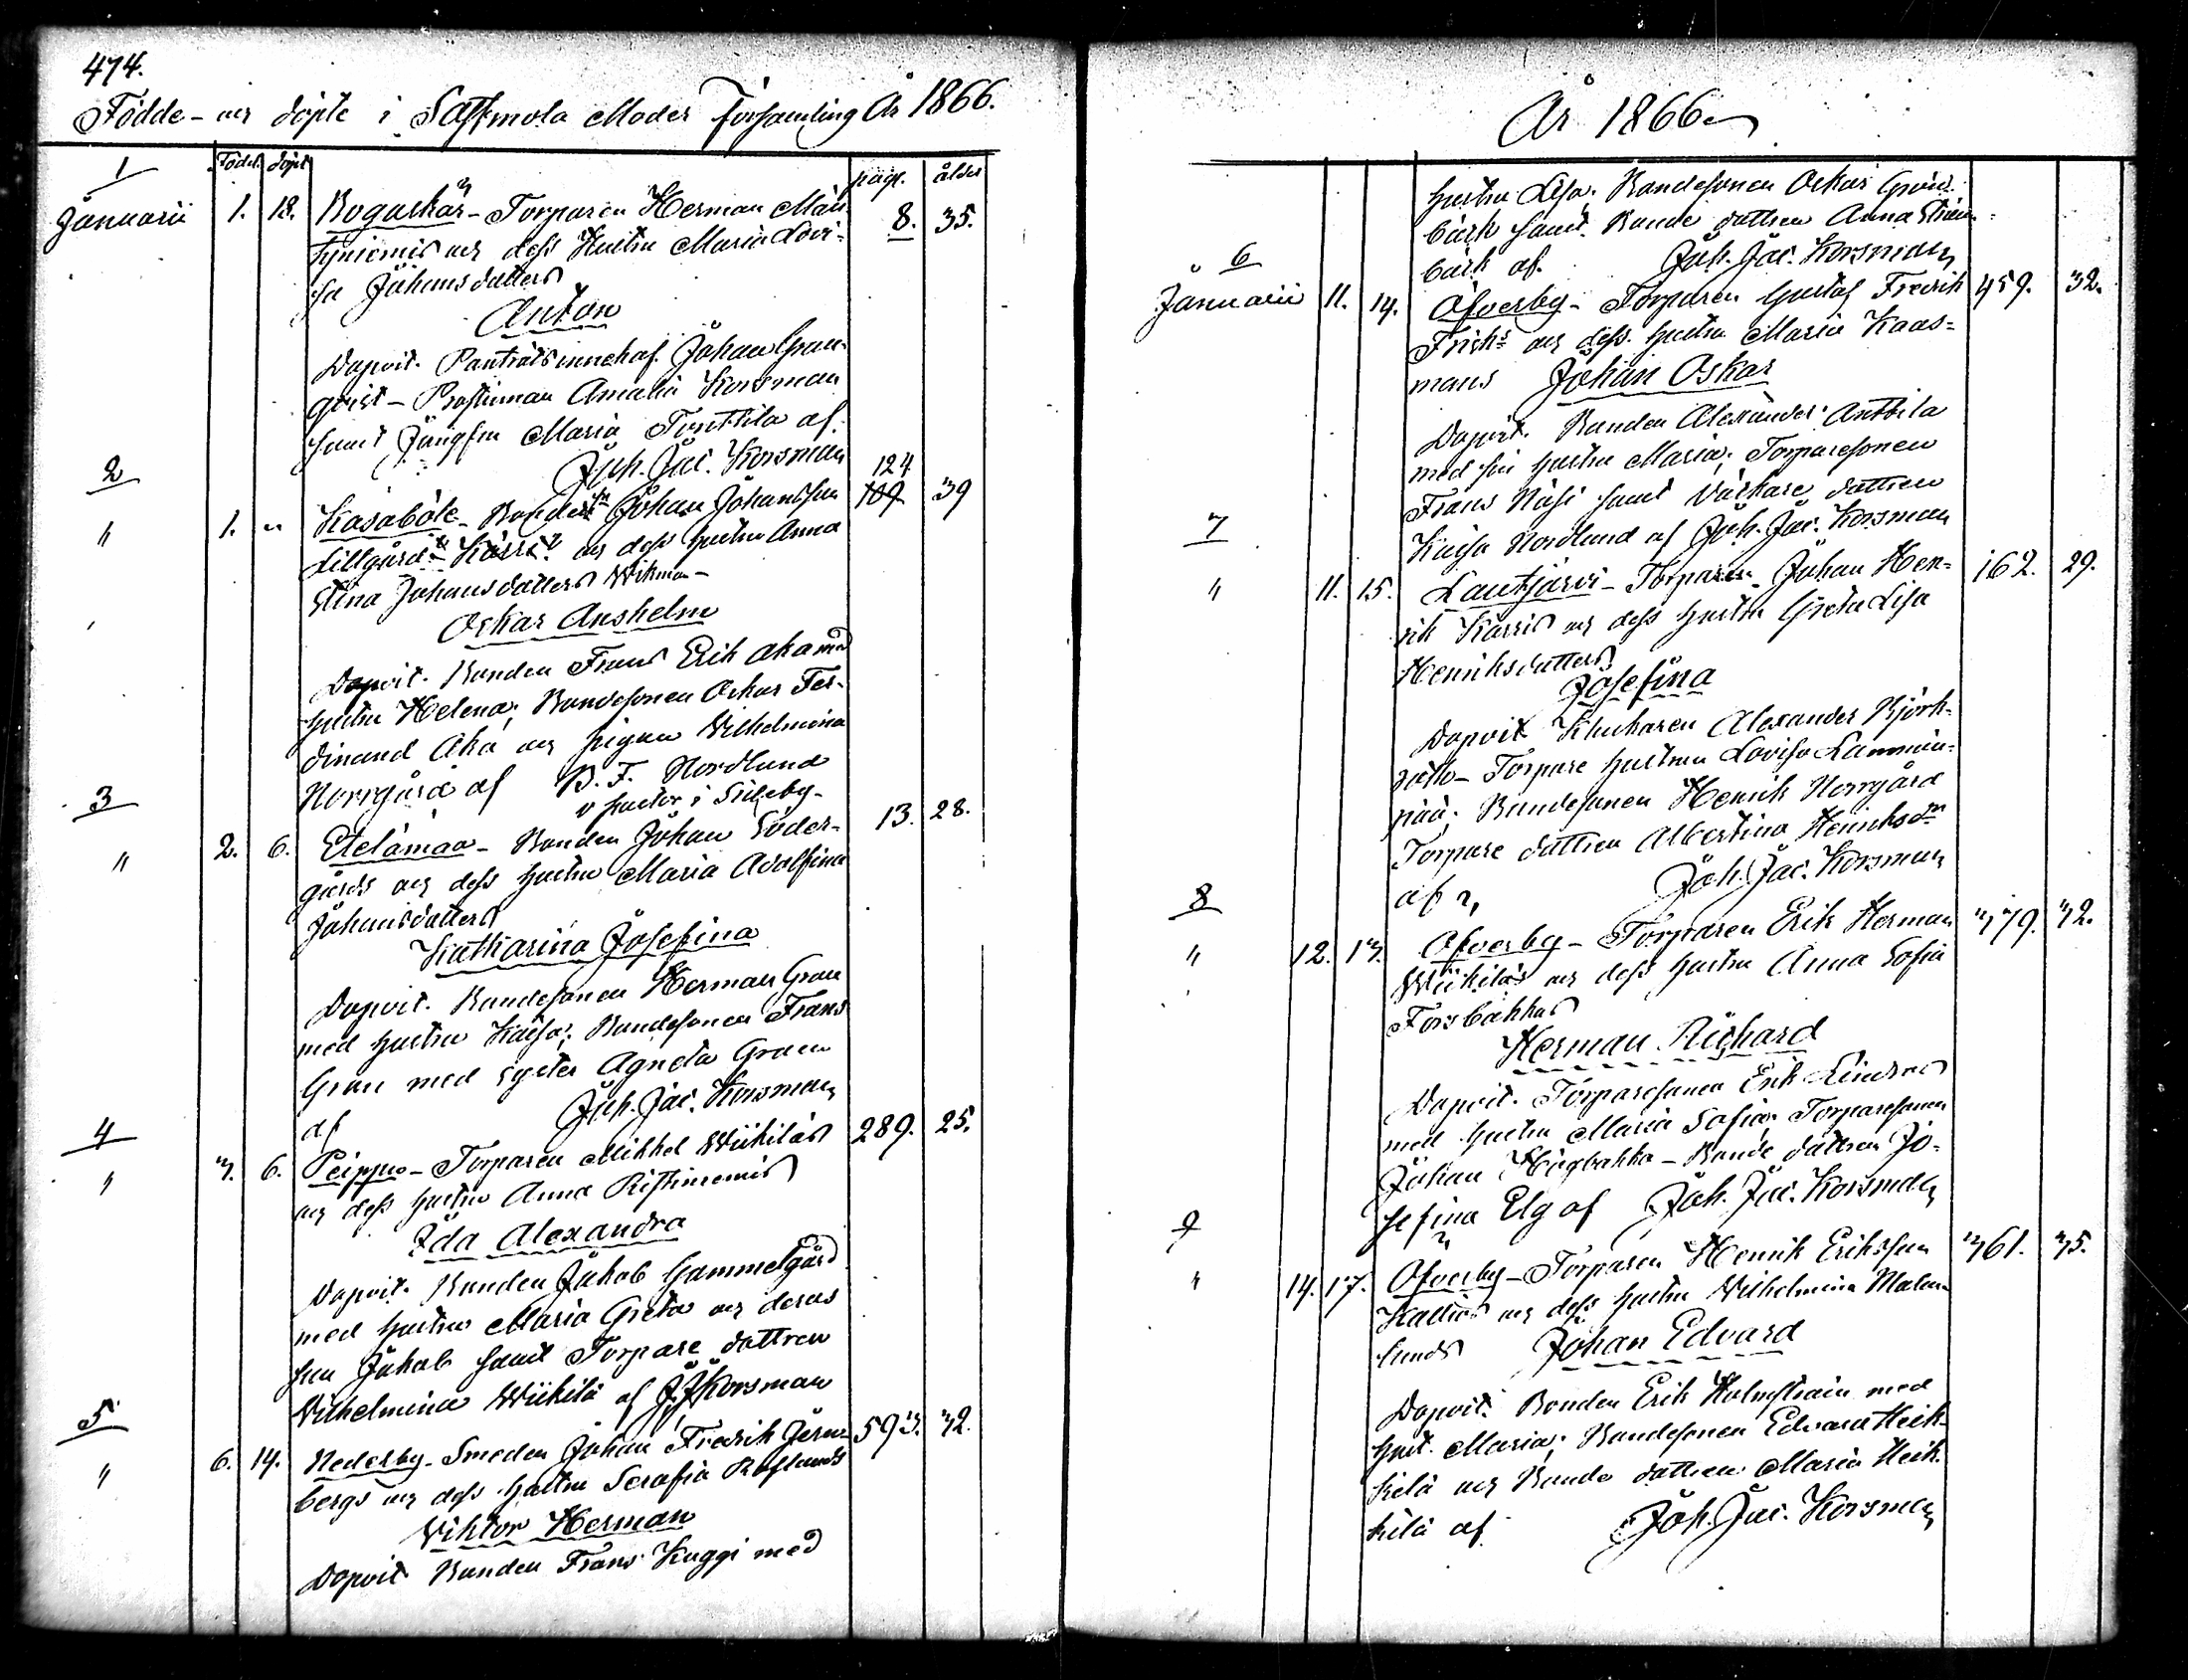 474.
Födde- och döpte i Sastmola Moder församling År 1866.
Född. döpt pag. ålder
1
Januarii 1. 18. Bogaskär - Torparen Herman Män- 8. 35.
tyniemis och dess Hustru Maria Lovi-
sa Johansdotters
Anton
Dopvit. Johan Gran-
qvist - Amalia Korsman
samt Jungfru Maria Tonttila af
Joh. Jac. Korsman
2
" 1. " Kasaböle - Bonden Johan Johansson 124 109 39
Lillgård och dess hustru Anna
Stina Johansdotters Wikman -
Oskar Anshelm
Dopvit. Bonden Frans Erik Aho med
hustru Helena, Bondesonen Oskar Fer-
dinand Aho och pigan Wilhelmina
Norrgård af B. F. Nordlund
i Sideby -
3
" 2. 6. Etelämaa - Bonden Johan Söder- 13. 28.
gårds och dess hustru Maria Adolfina
Johansdotters
Katharina Josefina
Dopvit. Bondesonen Herman Gran
med hustru Kaisa, Bondesonen Frans
Gran med syster Agneta Gran
af Joh. Jac. Korsman
4
" 3. 6. Peippu - Torparen Mikkel Wiikiläs 289. 25.
och dess hustru Anna Ristiniemis
Ida Alexandra
Dopvit. Bonden Jakob Gammelgård
med hustru Maria Greta och deras
son Jakob samt Torpare dottren
Wilhelmina Wiikilä af J. J. Korsman
5
" 6. 14. Nederby - Smeden Johan Fredrik Jern- 593. 32.
bergs och dess hustru Serafia Roslunds
Viktor Herman
Dopvit Bonden Frans Kuggi med
År 1866
hustru Lisa, Bondesonen Oskar
bäck samt Bonde dottren Anna
bäck af Joh. Jac. Korsman
6
Januarii 11. 14. Öfverby - Torparen Gustaf Fredrik 459. 32.
Frisks och dess hustru Maria Kaas-
mans Johan Oskar
Dopvit. Bonden Alexander Anttila
med sin hustru Maria, Torparesonen
Frans Näsi samt dottren
Kaisa Nordlund af Joh. Jac. Korsman
7
" 11. 15. Lautjärvi - Torparen Johan Hen- 162. 29.
rik Karris och dess hustru Greta Lisa
Henriksdotters
Josefina
Dopvit Klockaren Alexander Björk-
- Torpare hustrun Lovisa Lammin-
pää, Bondesonen Henrik Norrgård
Torpare dottren Albertina Henriksdr
af Joh. Jac. Korsman
8
" 12. 13. Öfverby - Torparen Erik Herman 379. 32.
Wiikiläs och dess hustru Anna Sofia
Forsbackas
Herman Richard
Dopvit. Torparesonen Erik Lindroos
med hustru Maria Sofia, Torparesonen
Johan Högbakka - Bonde dottren Jo-
sefina Elg af Joh. Jac. Korsman
9
" 14. 17. Öfverby - Torparen Henrik Eriksson 361. 35.
Kallios och dess hustru Wilhelmina Malm-
lunds Johan Edvard
Dopvit. Bonden Erik Holmström med
hust. Maria, Bondesonen Edvard Heik-
kilä och Bonde dottren Maria Heik-
kilä af Joh. Jac. Korsman